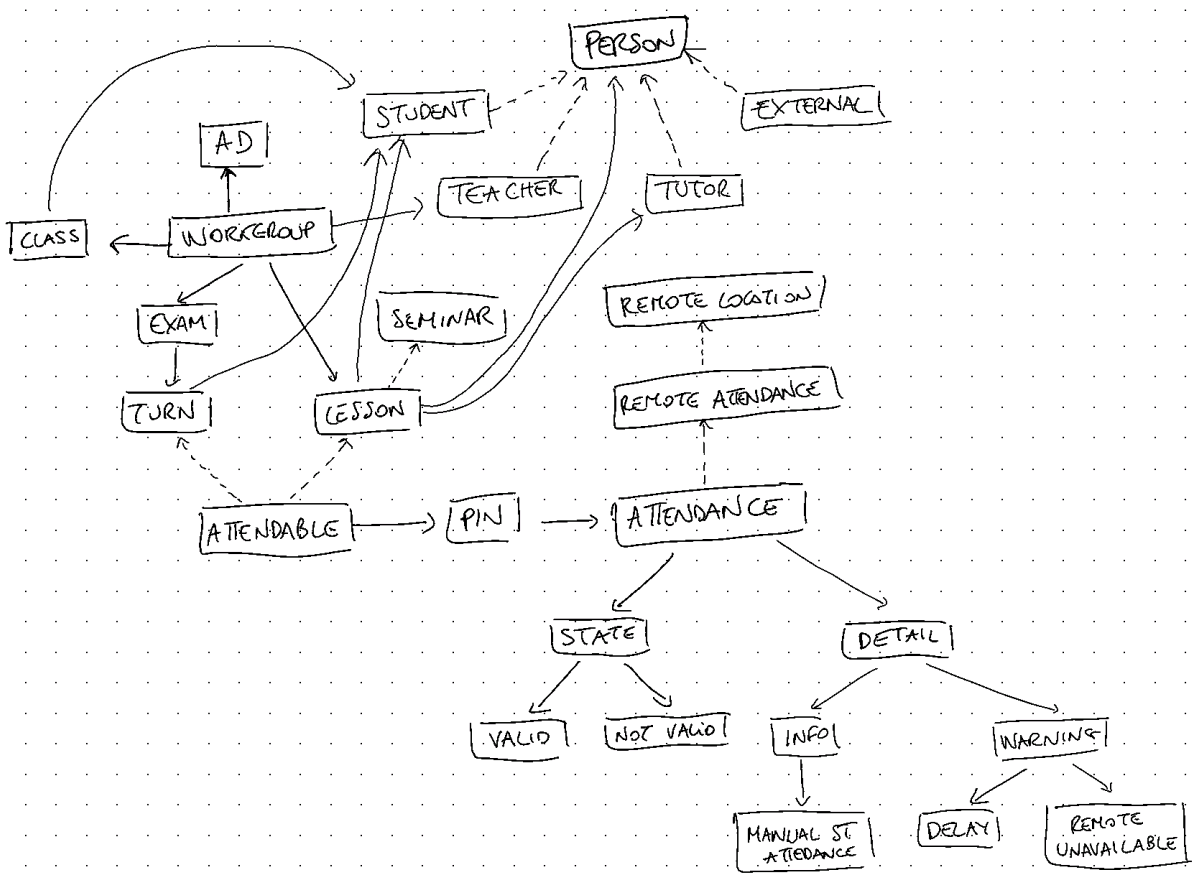 PERSON
STUDENT
EXTERNAL
AD
TEACHER
TUTOR
CLASS
WORKGROUP
REMOTE LOCATION
EXAM
SEMINAR
REMOTE ATTENDANCE
TURN
LESSON
ATTENDABLE
PIN
ATTENDANCE
STATE
DETAIL
VALID
NOT VALID
INFO
WARNING
MANUAL ST
ATTEDANCE
DELAY
REMOTE
UNAVAILABLE